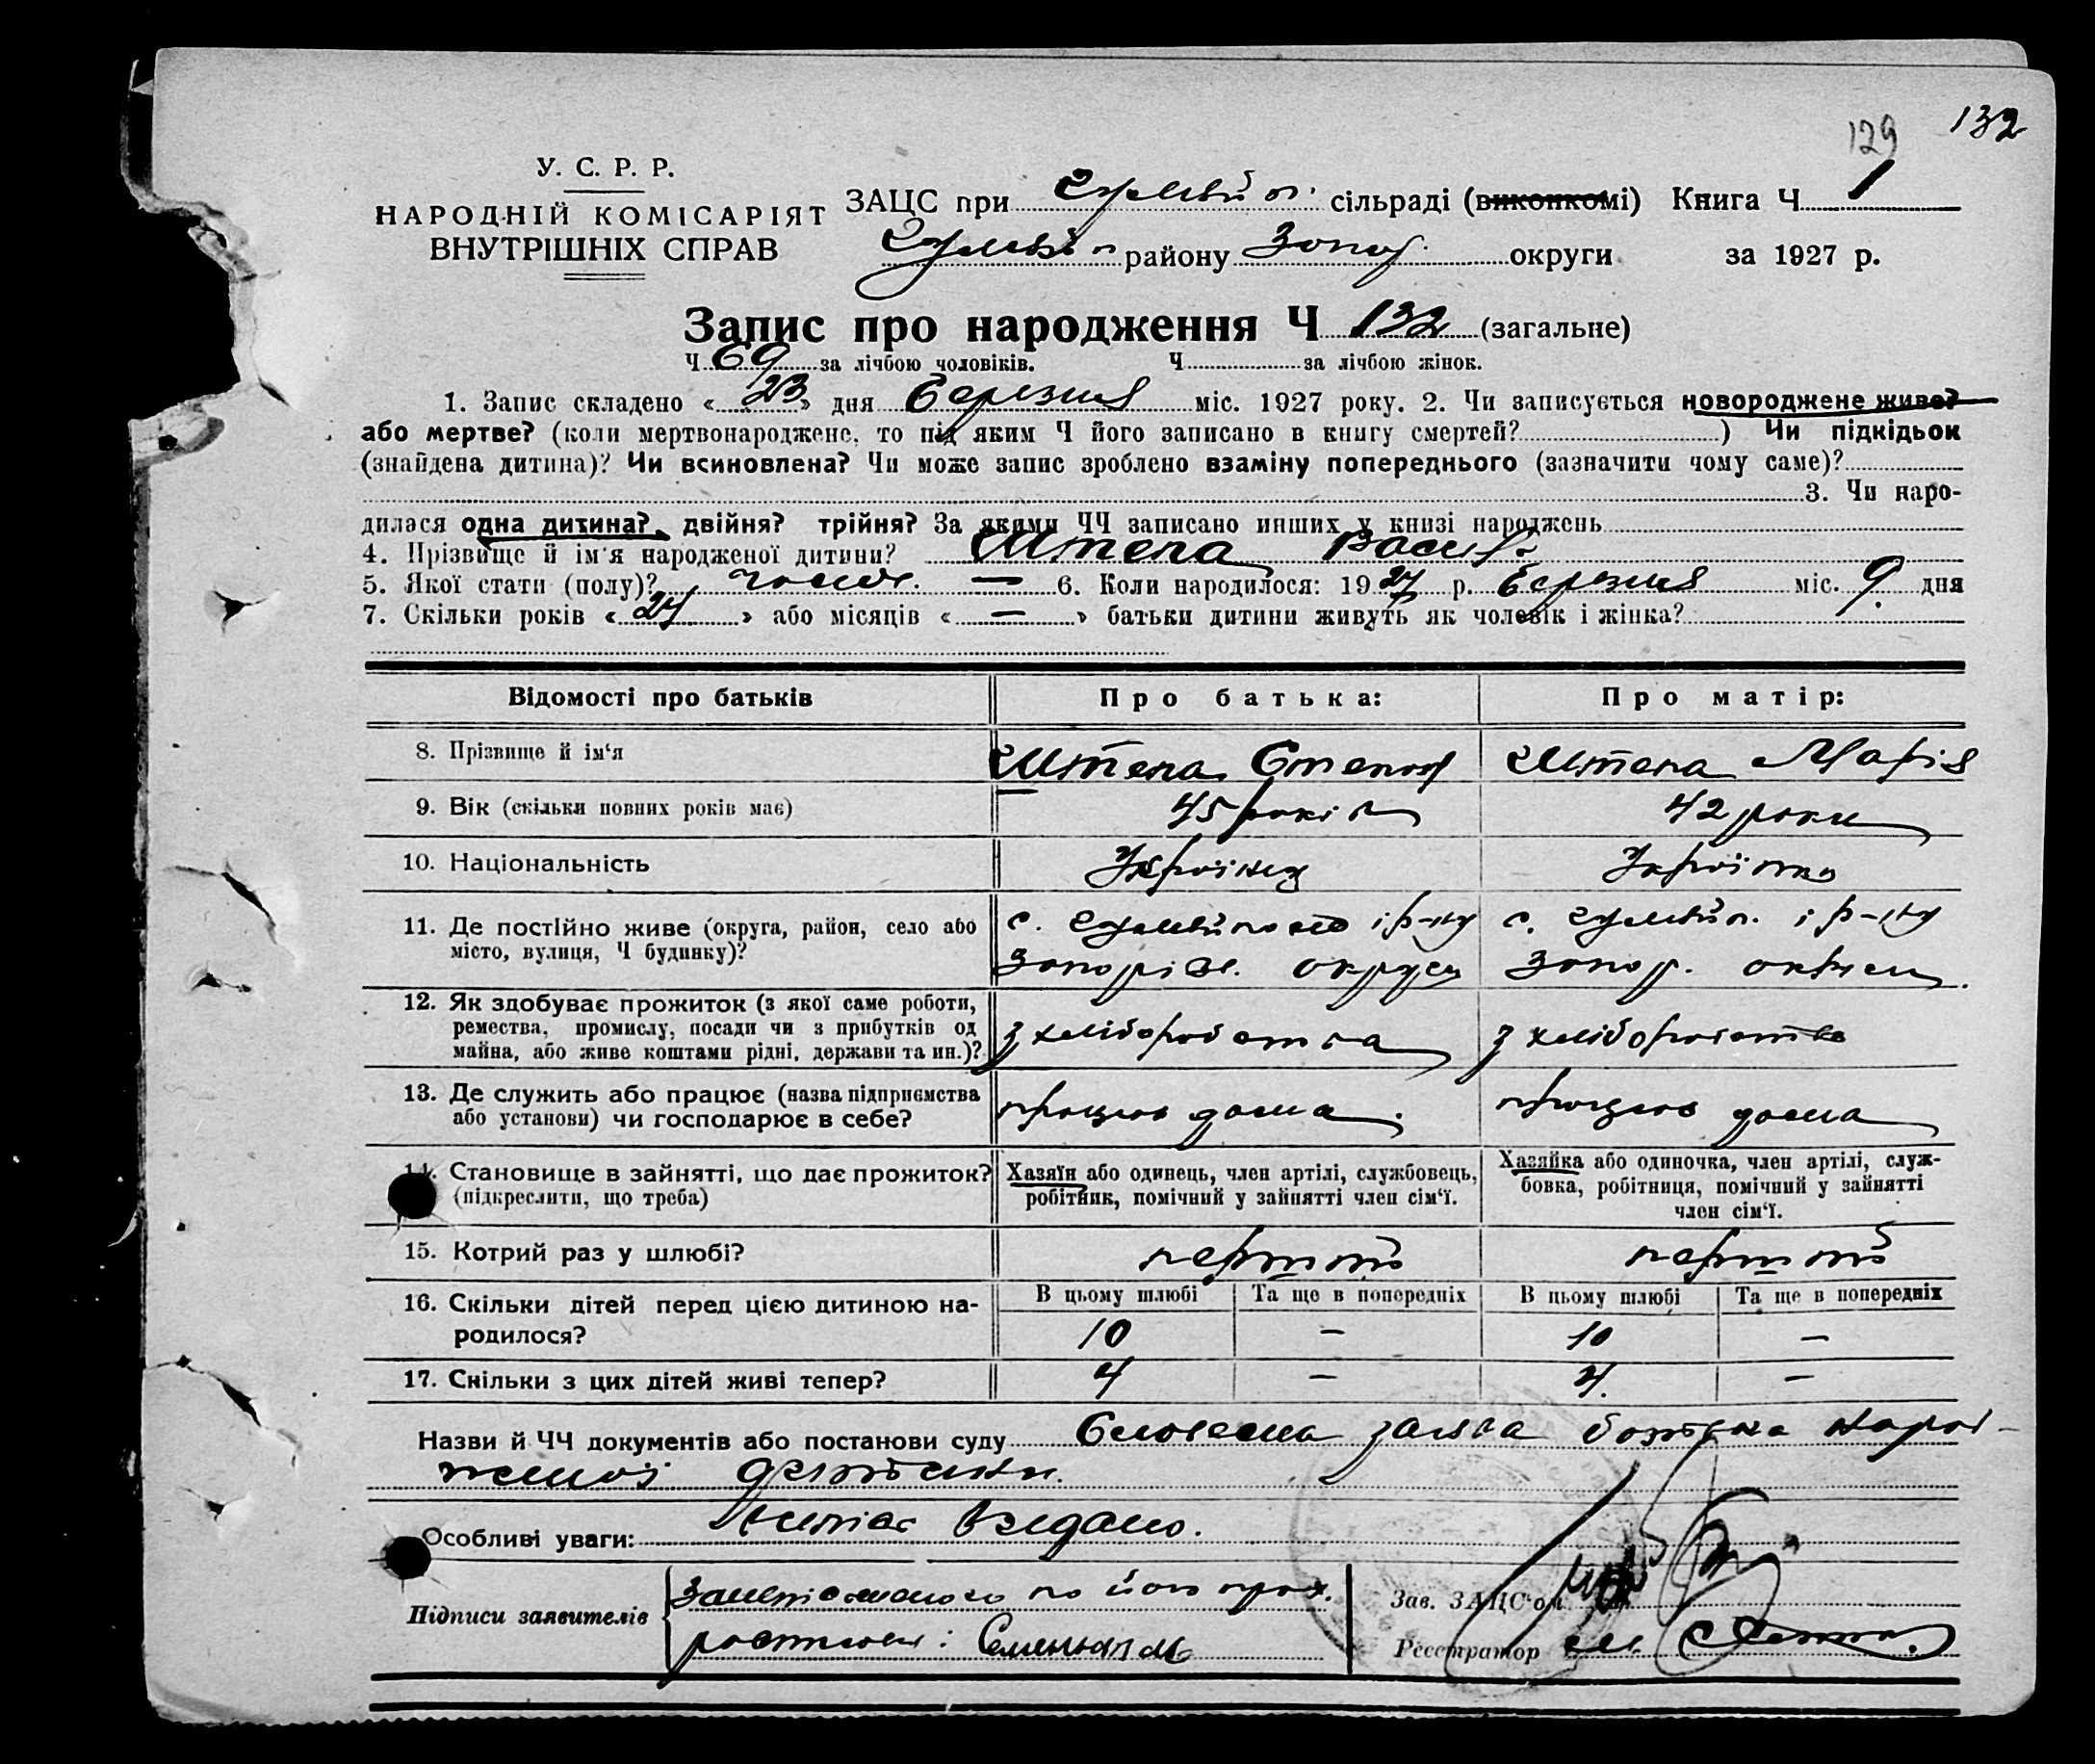 129 132
У. С. Р. Р.
НАРОДНІЙ КОМІСАРІЯТ
ВНУТРІШНІХ СПРАВ
ЗАЦС при сільраді (виконкомі) Книга Ч 1
району Запор. округи за 1927 р.
Запис про народження Ч 132 (загальне)
Ч 69 за лічбою чоловіків. Ч за лічбою жінок.
1. Запис складено « 23 » дня березня міс. 1927 року. 2. Чи записується новороджене живе?
або мертве? (коли мертвонароджене, то під яким Ч його записано в книгу смертей? ) Чи підкідьок
(знайдена дитина)? Чи всиновлена? Чи може запис зроблено взаміну попереднього (зазначити чому саме)?
3. Чи наро-
дилася одна дитина? двійня? трійня? За якими ЧЧ записано инших у книзі народжень
4. Прізвище й ім'я народженої дитини? Штепа Василь
5. Якої стати (полу)? чолов. — 6. Коли народилося: 1927 р. березня міс. 9 дня
7. Скільки років « 24 » або місяців « — » батьки дитини живуть як чоловік і жінка?
Відомості про батьків Про батька: Про матір:
8. Прізвище й ім'я Штепа Степан Штепа Марія
9. Вік (скільки повних років має) 45 років 42 роки
10. Національність Українец Українка
11. Де постійно живе (округа, район, село або
місто, вулиця, Ч будинку)?
с. і р-ну с. і р-ну
Запоріж. округи Запор. округи
12. Як здобуває прожиток (з якої саме роботи,
ремества, промислу, посади чи з прибутків од
майна, або живе коштами рідні, держави та ин.)?
з хліборобства з хліборобства
13. Де служить або працює (назва підприємства
або установи) чи господарює в себе?
працює дома. працює дома
14. Становище в зайнятті, що дає прожиток?
(підкреслити, що треба)
Хазяїн або одинець, член артілі, службовець,
робітник, помічний у зайнятті член сім'ї.
Хазяйка або одиночка, член артілі, служ-
бовка, робітниця, помічний у зайнятті
член сім'ї.
15. Котрий раз у шлюбі? перший перший
16. Скільки дітей перед цією дитиною на-
родилося?
В цьому шлюбі Та ще в попередніх В цьому шлюбі Та ще в попередніх
10 — 10 —
17. Скільки з цих дітей живі тепер? 4 — 4. —
Назви й ЧЧ документів або постанови суду Словесна заява батька народ-
женої дитини.
Особливі уваги: видано.
Підписи заявителів
по його прох.
Зав. ЗАЦС'ом
Реєстратор